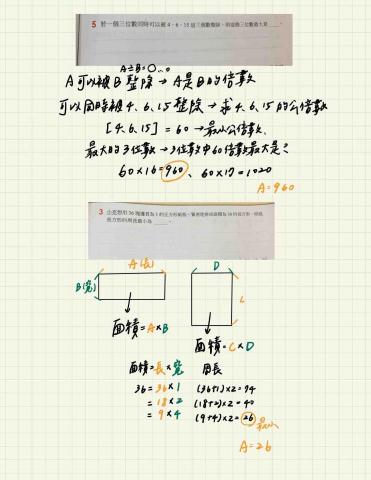 5 若一個三位數同時可以被 4、6、15 這三個數整除,則這個三位數最大是____。
A÷B=O...0
A可以被B整除→A是B的倍數
可以同時被4、6、15整除→求4、6、15的公倍數
[4、6、15]=60→最小公倍數、
最大的3位數→3位數中60倍數最大是?
60×16=960、60×17=1020
A=960
3
36
1
36
____。
A(長)
B(寬)
面積=A×B
D
L
面積=C×D
面積=長×寬 周長
36=36×1 (36+1)×2=74
=18×2 (18+2)×2=40
=9×4 (9+4)×2=26 最小
A=26